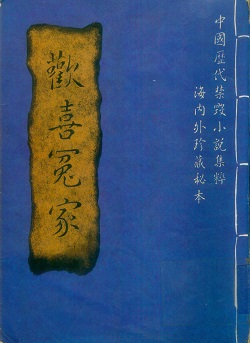 中國歷代禁毀小說集粹
海內外珍藏秘本
歡喜冤家